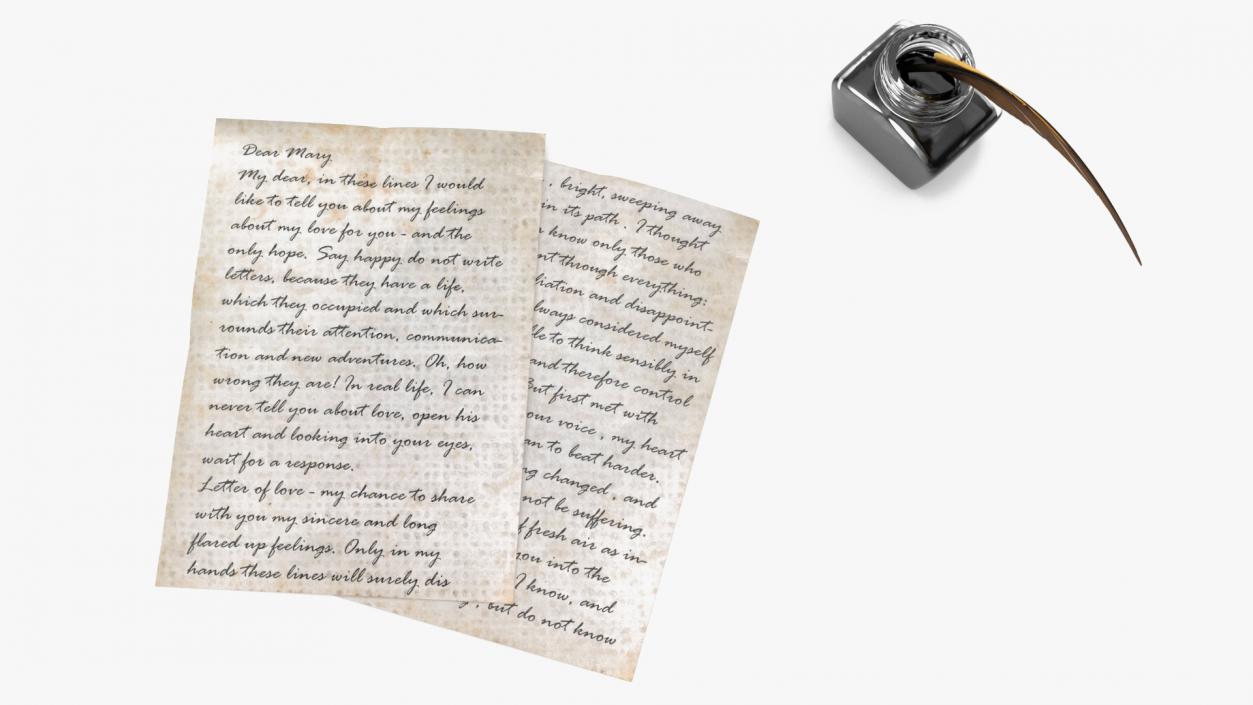 Dear Mary
My dear, in these lines I would
like to tell you about my feelings
about my love for you - and the
only hope. Say happy do not write
letters, because they have a life,
which they occupied and which sur-
rounds their attention, communica-
tion and new adventures. Oh, how
wrong they are! In real life, I can
never tell you about love, open his
heart and looking into your eyes,
wait for a response.
Letter of love - my chance to share
with you my sincere and long
flared up feelings. Only in my
hands these lines will surely dis
, bright, sweeping away
in its path. I thought
know only those who
through everything:
and disappoint-
always considered myself
to think sensibly in
and therefore control
But first met with
your voice, my heart
to beat harder.
changed, and
not be suffering.
fresh air as in-
you into the
I know, and
, but do not know